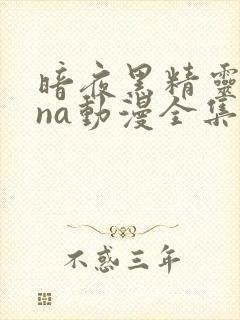 暗夜黑精靈
na動漫全集
不惑三年